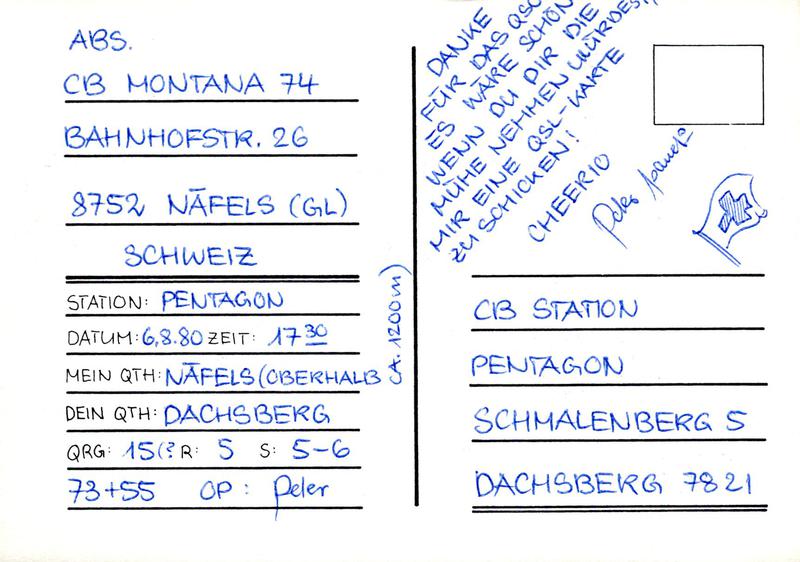 ABS.
CB MONTANA 74
BAHNHOFSTR. 26
8752 NÄFELS (GL)
SCHWEIZ
STATION: PENTAGON
DATUM: 6.8.80 ZEIT: 17 30
MEIN QTH: NÄFELS (OBERHALB
CA. 1200m)
DEIN QTH: DACHSBERG
QRG: 15(? R: 5 S: 5-6
73+55 OP: Peter
DANKE
FÜR DAS QSO
ES WÄRE SCHÖN
WENN DU DIR DIE
MÜHE NEHMEN WÜRDEST,
MIR EINE QSL-KARTE
ZU SCHICKEN!
CHEERIO
Peter
CB STATION
PENTAGON
SCHMALENBERG 5
DACHSBERG 7821